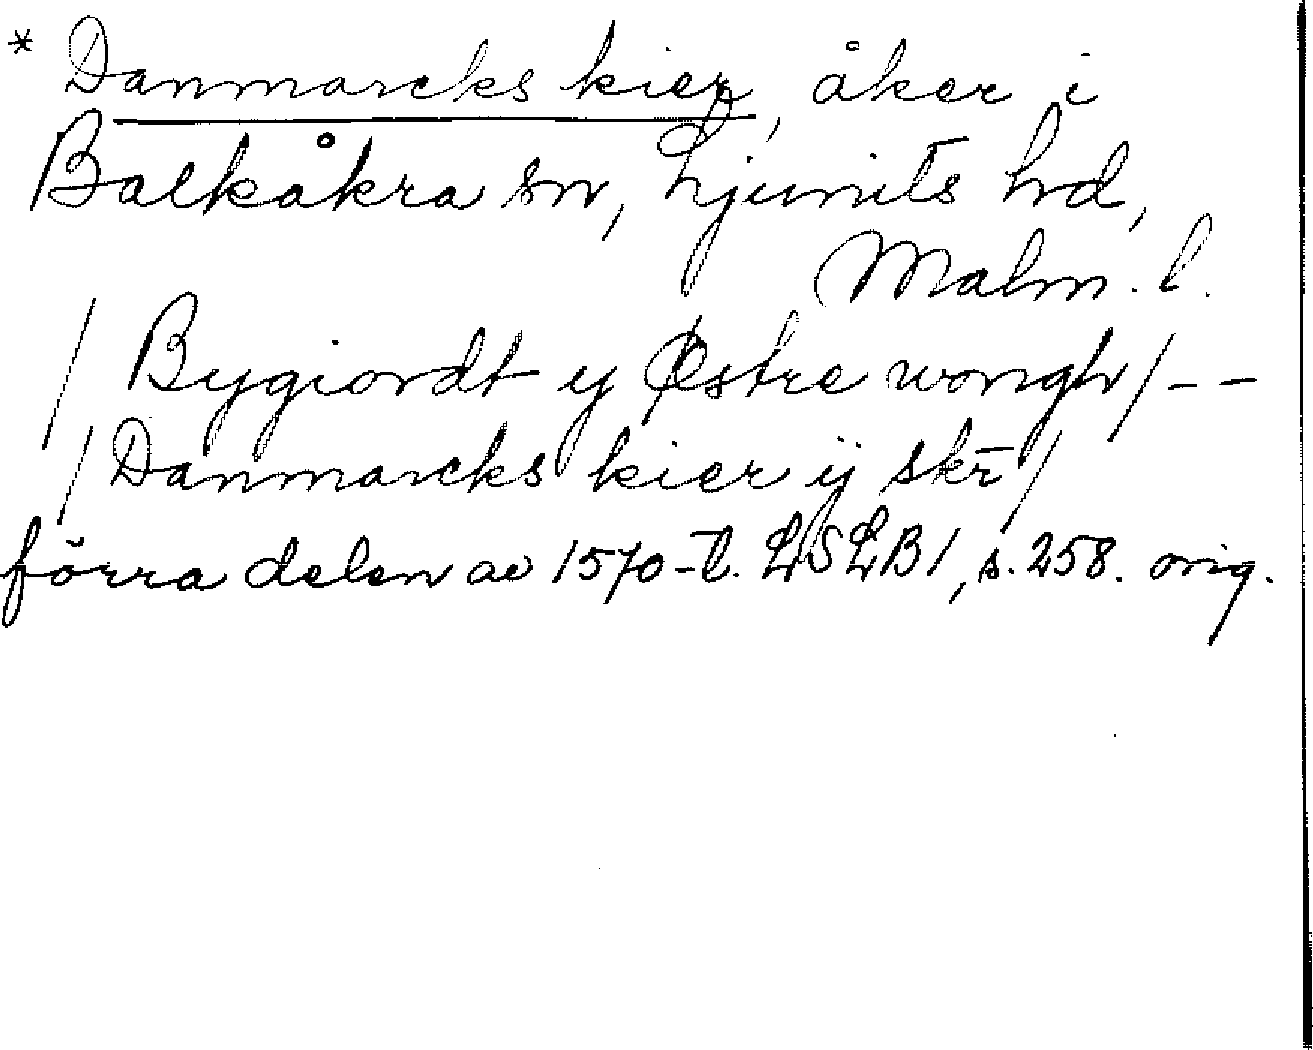 * Danmarcks kier, åker i
Balkåkra sn, Ljunits hd,
Malm. l.
/ Bygiordt y Østre wongh/ - -
/ Danmarcks kier ÿ skr̄ /
förra delen av 1570-t. LSLB1, s. 258. orig.